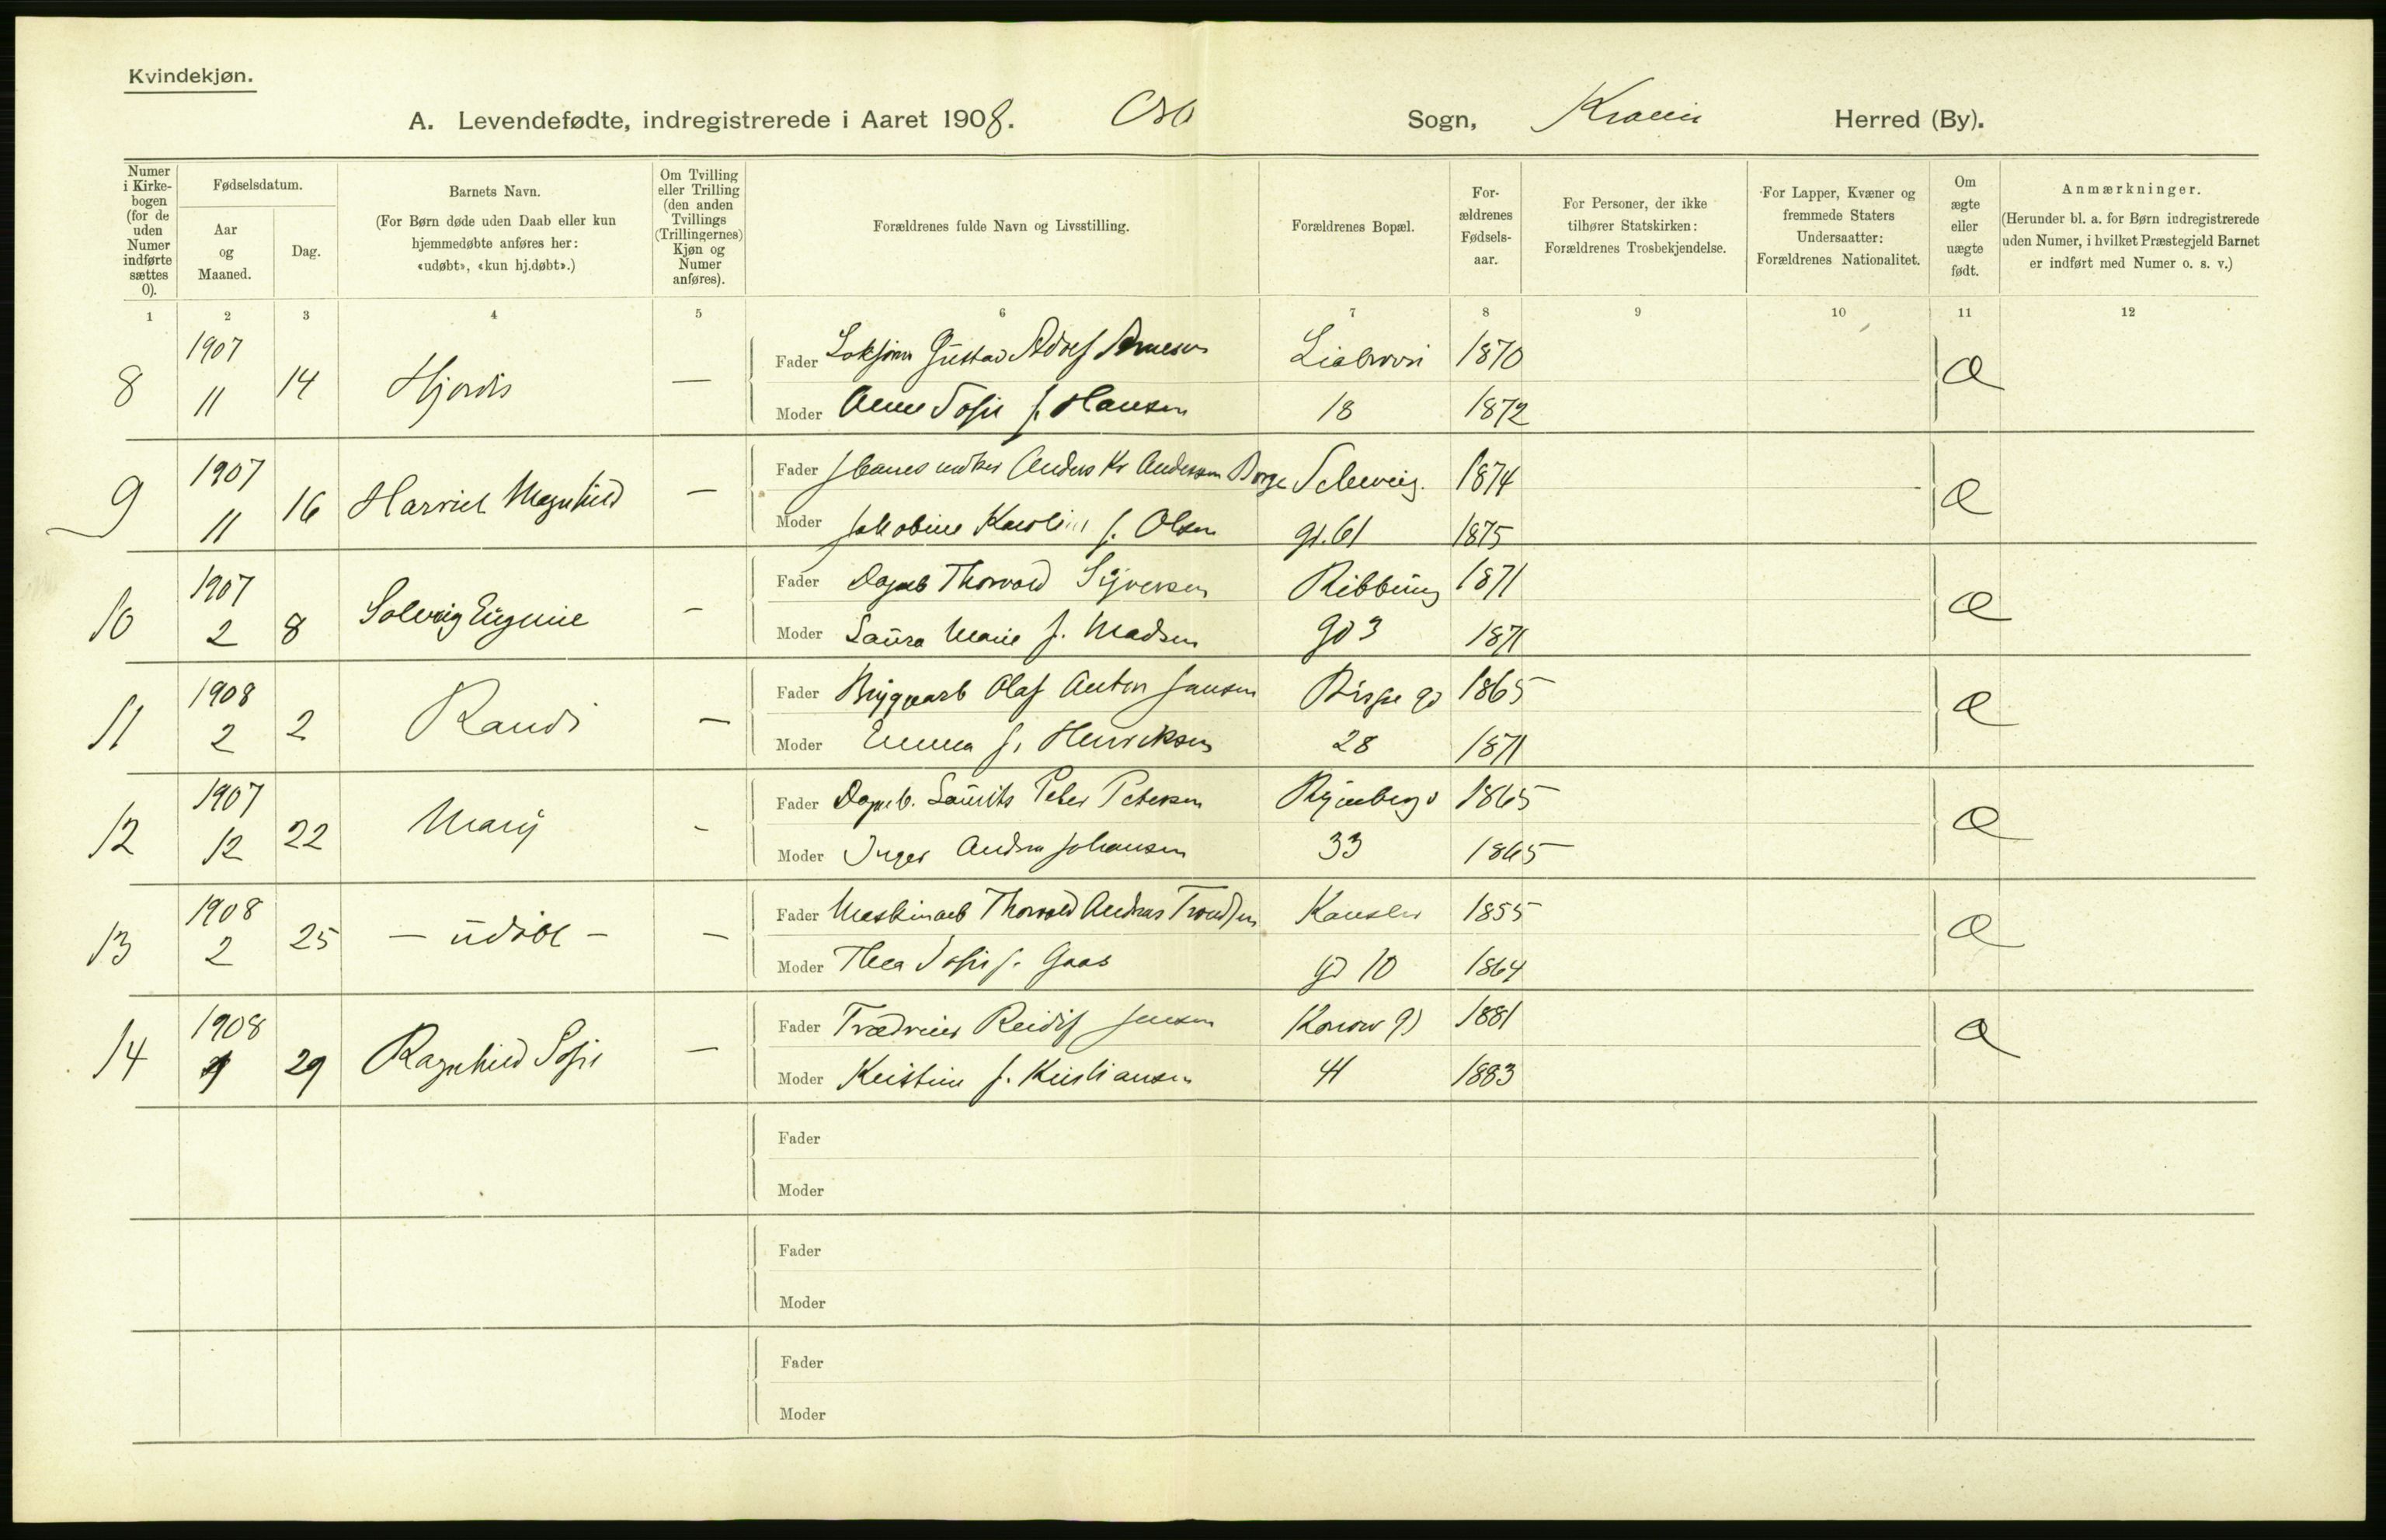 Kvindekjøn.
A. Levendefødte, indregistrerede i Aaret 1908. Oslo Sogn, Kra Herred (By).
Numer i Kirkebogen (for de uden Numer indførte sættes 0).
Fødselsdatum.
Aar og Maaned.
Dag.
Barnets Navn.
(For Børn døde uden Daab eller kun hjemmedøbte anføres her: «udøbt», «kun hj.døbt».)
Om Tvilling eller Trilling (den anden Tvillings (Trillingernes) Kjøn og Numer anføres).
Forældrenes fulde Navn og Livsstilling.
Forældrenes Bopæl.
Forældrenes Fødselsaar.
For Personer, der ikke tilhører Statskirken: Forældrenes Trosbekjendelse.
For Lapper, Kvæner og fremmede Staters Undersaatter: Forældrenes Nationalitet.
Om ægte eller uægte født.
Anmærkninger.
(Herunder bl. a. for Børn indregistrerede uden Numer, i hvilket Præstegjeld Barnet er indført med Numer o. s. v.)
1 2 3 4 5 6 7 8 9 10 11 12
8 1907 11 14 Hjordis —
Fader Gustav Adolf Arnesen 1870
Moder Anne Sofie f. Hansen 18 1872
9 1907 11 16 Harriet Magnhild —
Fader Anders Kr Andersen Borge Schweig. 1874
Moder Jakobine Karoline f. Olsen gd. 61 1875
10 1907 2 8 Solveig Eugenie —
Fader Dagarb Thorvald Syversen Ribbung 1871
Moder Laura Marie f. Madsen gd 3 1871
11 1908 2 2 Randi —
Fader Bryggearb Olaf Anton Jansen Bispe gd 1865
Moder Emma f. Henriksen 28 1871
12 1907 12 22 Mary —
Fader Dagarb. Laurits Peter Petersen 1865
Moder Inger Andrea Johansen 33 1865
13 1908 2 25 — udøbt — —
Fader Maskinarb Thorvald Andreas Trondsen Kansler 1855
Moder Thea Sofie f. Gaas gd 10 1864
14 1908 29 Ragnhild Sofie —
Fader Jensen Konow gd 1881
Moder Kristine f. Kristiansen 41 1883
Fader
Moder
Fader
Moder
Fader
Moder